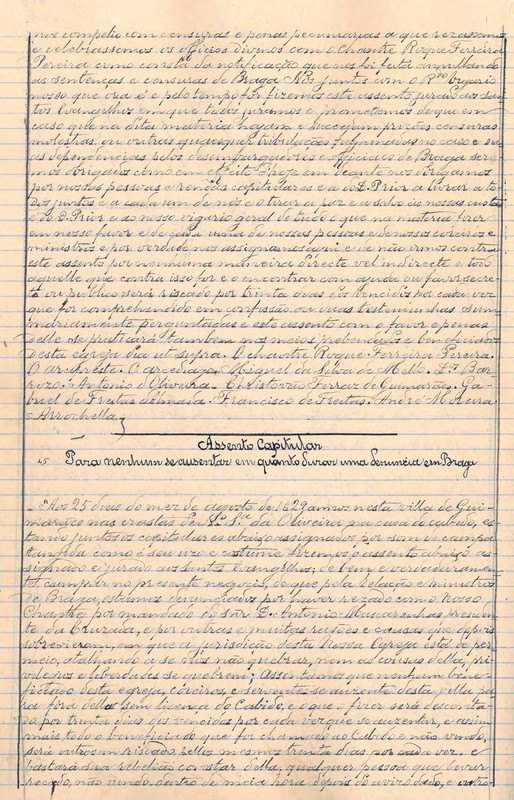 nos compelio com censuras e penas pecuniarias a que rezassemos
e celebrassemos os officios divinos com o Chantre Roque Ferreira
Pereira como consta da notificação que nos foi feita annullando
as sentenças e censuras de Braga Nós juntos com o Rdo vigario
nosso que ora é e pelo tempo for fizemos este assento jurado aos San-
tos Evangelhos em que todos juramos e promettemos de que em
caso que na dita materia hajam e succejam prizões censuras
molestias ou outras quaesquer tribulações fulminadas no caso e su-
as dependencias pelos desembargadores e officiaes de Braga sere-
mos obrigados como em effeito d'hoje em deante nos obrigamos
por nossas pessoas e rendas capitulares e a do D. Prior a livrar a to-
dos juntos e a cada um de nós e o tirar a paz e a salvo ás nossas custas
e do D. Prior e ao nosso vigario geral de tudo o que na materia fizer
em nosso favor e de cada uma de nossas pessoas e de nossos coreiros e
ministros e por verdade nos assignamos aqui e de não irmos contra
este assento por nenhuma maneira directe vel indirecte e todo
aquelle que contra isso for e o encontrar com ajuda ou favor secre-
to ou publico será riscado por trinta dias dos vencidos por cada vez
que for comprehendido em confissão ou duas testimunhas sum-
mariamente perguntadas e este assento com o favor e penas
delle se praticará tambem nos meios prebendados e beneficiados
desta egreja dia ut supra. O chantre Roque Ferreira Pereira.
O arcipreste. O arcediago Miguel da Silva de Mello. Bar-
Antonio d'Oliveira. Cristovão Ferraz de Guimarães. Ga-
briel de Freitas d'Almada. Francisco de Freitas. André Moreira
Arrochella.
Assento Capitular
45 Para nenhum se ausentar em quanto durar uma denuncia em Braga
"Aos 25 dias do mez de agosto de 1629 annos nesta villa de Gui-
marães nas crastas de N. Sra. da Oliveira na casa do cabido, es-
tando juntos os capitulares abaixo assignados por som de campa
tangida como é seu uzo e costume fizemos o assento abaixo as-
signado e jurado aos Santos Evangelhos; de bem e verdadeiramen-
te cumprir no presente negocio, de que pela relação e ministros
de Braga, estamos denunciados por haver rezado com nosso
Chantre por mandado do snr D. Antonio Mascarenhas presiden-
te da Cruzada, e por outras e muitas rezões e causas que depois
sobrevieram, em que a jurisdição desta Nossa Egreja está de per-
meio, atalhando a se nos não quebrar, nem as cousas della, pri-
vilegios e liberdades se quebrem; Assentamos que nenhum bene-
ficiado desta egreja, coreiros, e serventes se auzente desta villa pa-
ra fóra della sem licença do Cabido, e o que o fizer será desconta-
do por trinta dias dos vencidos por cada vez que se auzentar, e assim
mais todo o beneficiado que for chamado ao Cabido e não vindo,
será outrosim riscado pellos mesmos trinta dias por cada vez, e
bastará sua rebelião constar della, qualquer pessoa que levar
recado, não vindo dentro de meia hora depois do aviso dado, e outro-